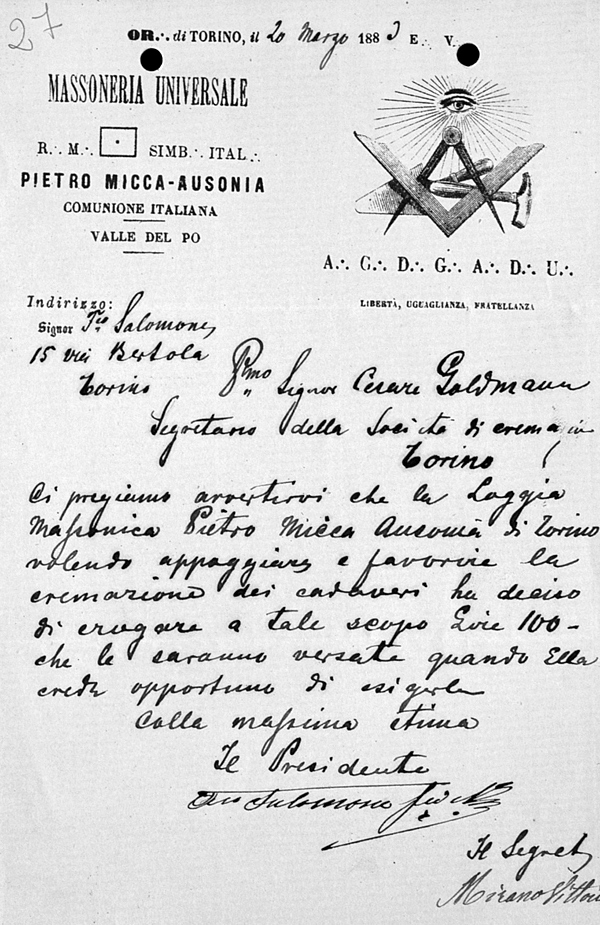 27
OR∴ di TORINO, il 20 Marzo 1883 E∴ V∴
MASSONERIA UNIVERSALE
R∴ M∴ SIMB∴ ITAL∴
PIETRO MICCA-AUSONIA
COMUNIONE ITALIANA
VALLE DEL PO
A∴ G∴ D∴ G∴ A∴ D∴ U∴
LIBERTÀ, UGUAGLIANZA, FRATELLANZA
Indirizzo:
Signor Salomone
15 via Bertola
Torino
Pmo Signor Cesare Goldmann
Segretario della Società di cremazione
Torino
Ci pregiamo avvertirvi che la Loggia
Massonica Pietro Micca Ausonia di Torino
volendo appoggiare e favorire la
cremazione dei cadaveri ha deciso
di erogare a tale scopo Lire 100-
che le saranno versate quando Ella
creda opportuno di esigerle
Colla massima stima
Il Presidente
Salomone
Il Segret
Mirano Vittori